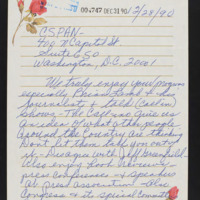 09:747 DEC31'90 12/28/90
CSPAN-
400 N Capitol St.
Suite 650
Washington, D.C. 20001
We truly enjoy your program
especially Brian Lamb & the
Journalist & talk (call in)
shows. The Call-ins give us
an idea of what other people
around the Country are thinking
Don't let them talk you out
of it. Diseases with Jeff Greenfield
Also enjoy Book Reviews
press conferences & speakers
at press association - Also
Congress & its Special Committees